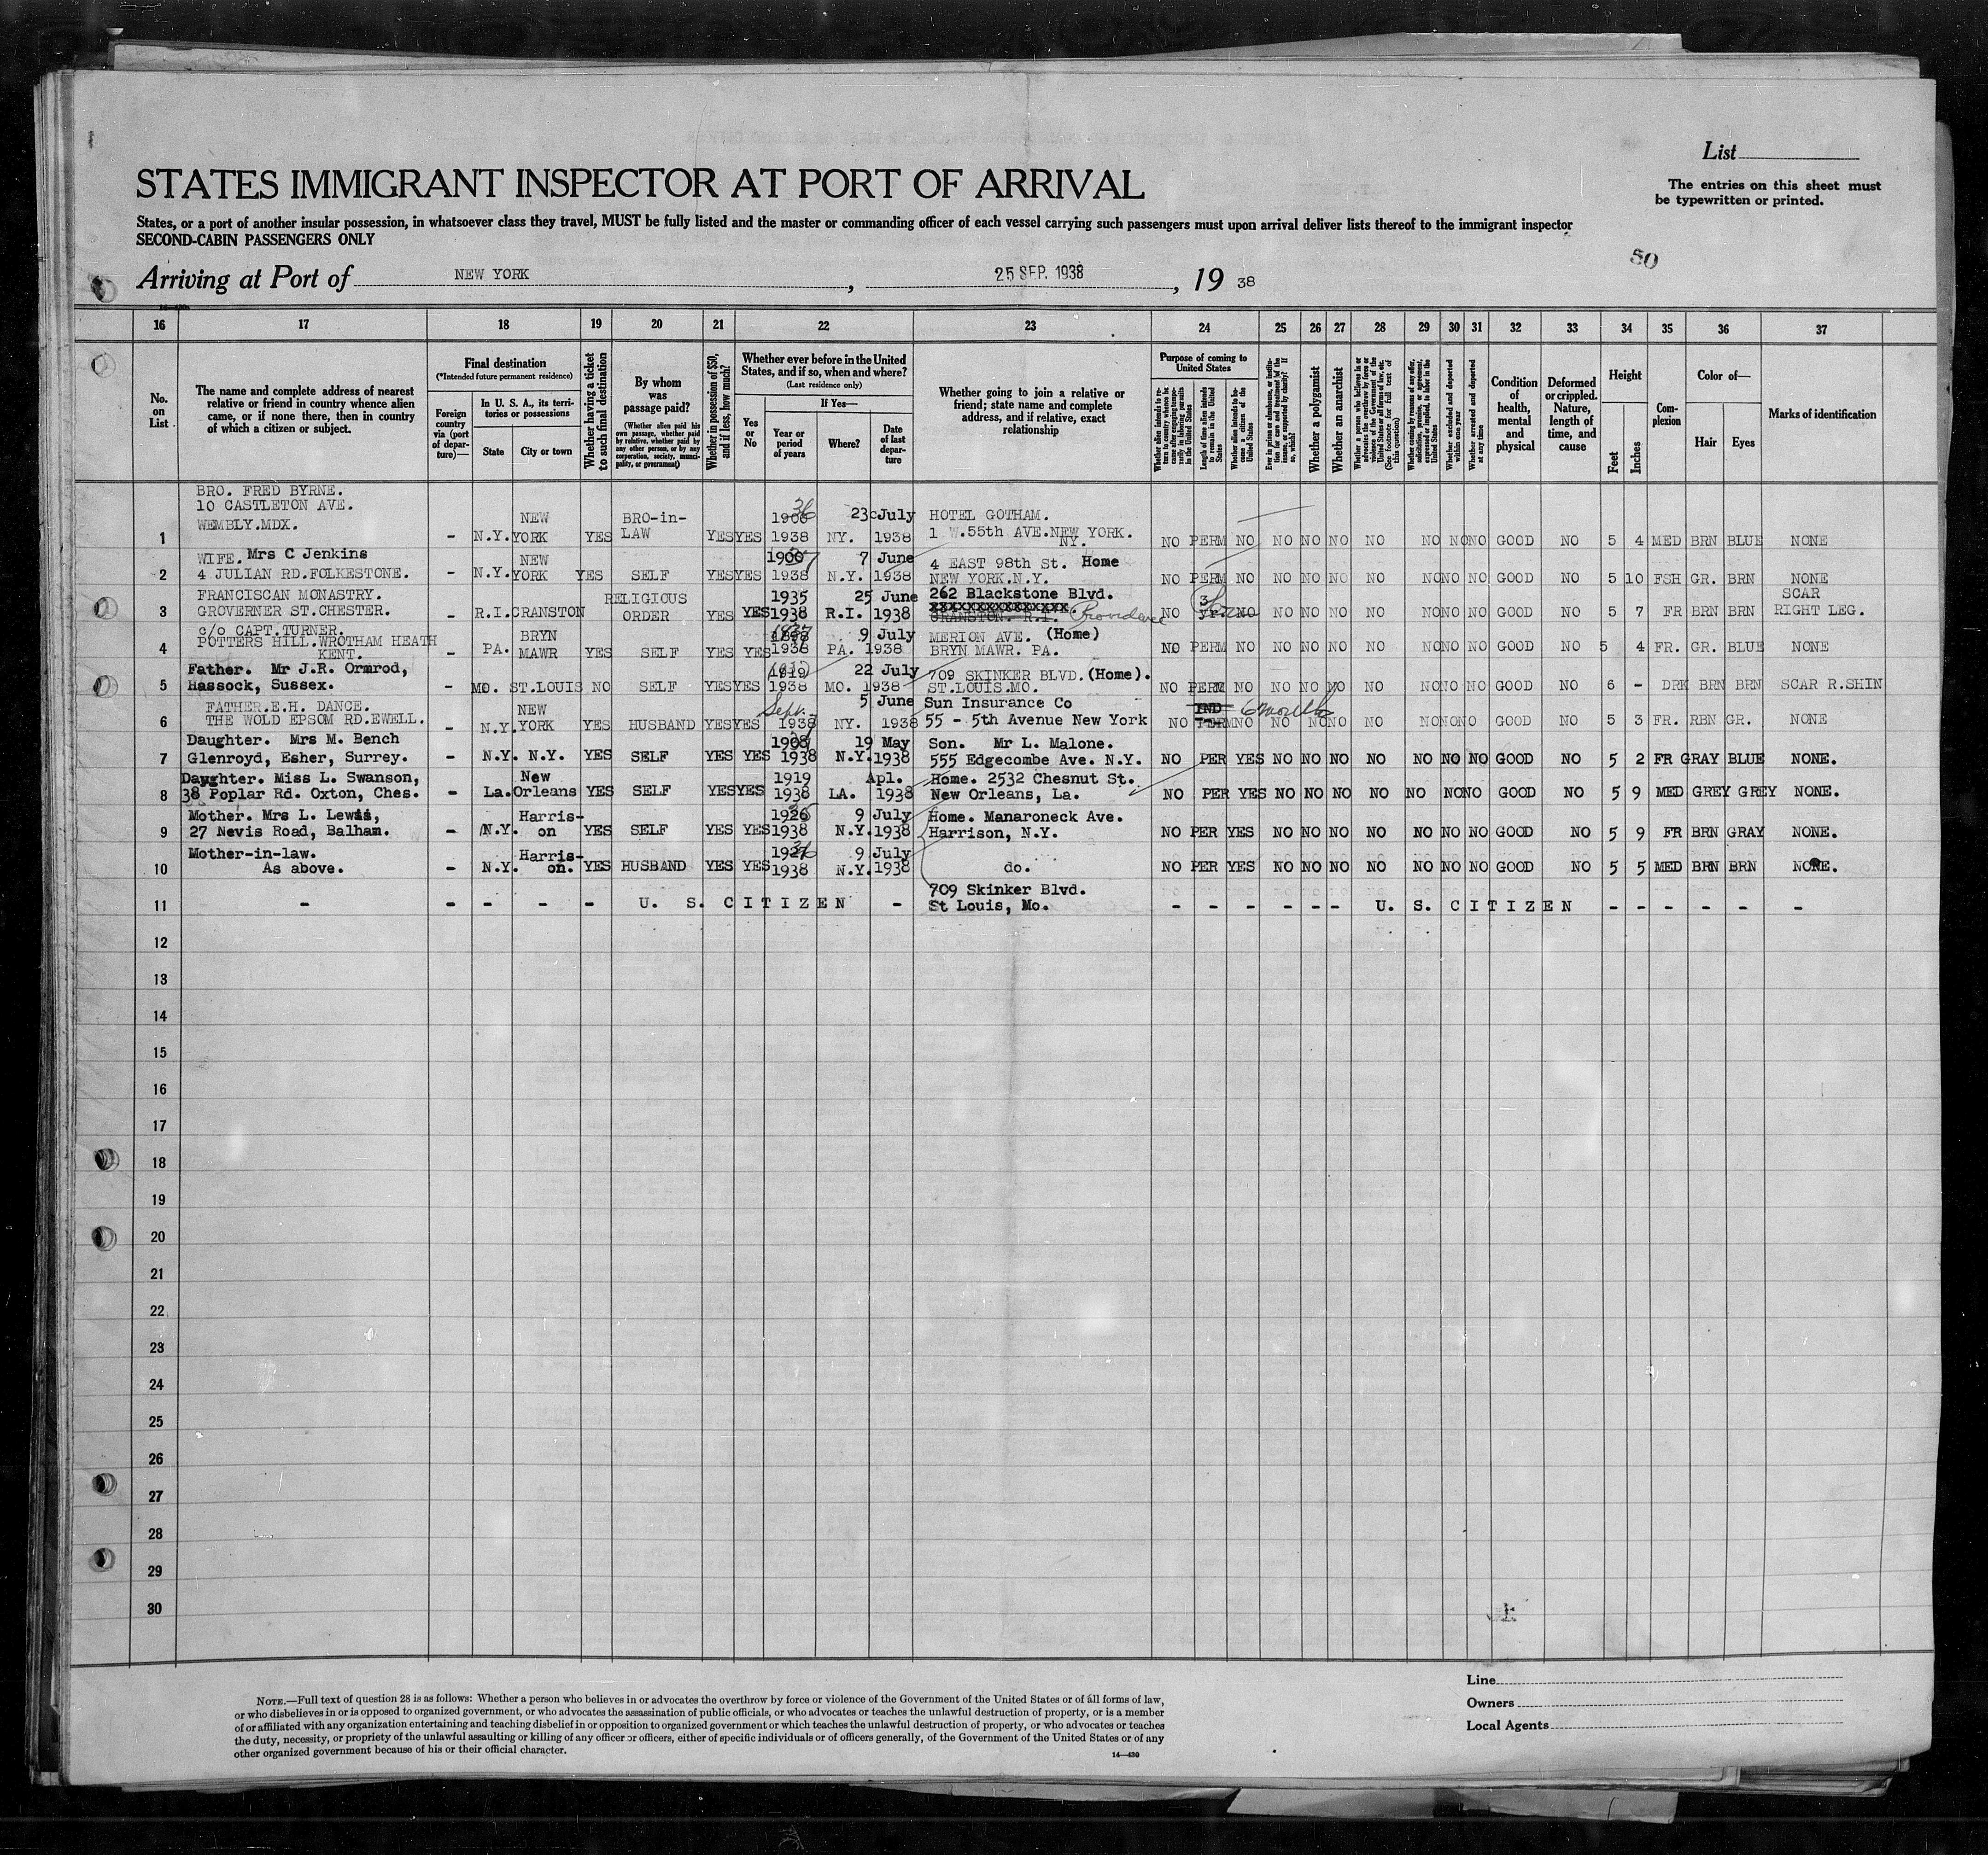 List
The entries on this sheet must
be typewritten or printed.
STATES IMMIGRANT INSPECTOR AT PORT OF ARRIVAL
States, or a port of another insular possession, in whatsoever class they travel, MUST be fully listed and the master or commanding officer of each vessel carrying such passengers must upon arrival deliver lists thereof to the immigrant inspector
SECOND-CABIN PASSENGERS ONLY
50
Arriving at Port of NEW YORK, 25 SEP. 1938, 19 38
16 17 18 19 20 21 22 23 24 25 26 27 28 29 30 31 32 33 34 35 36 37
No. on List
The name and complete address of nearest
relative or friend in country whence alien
came, or if none there, then in country
of which a citizen or subject.
Final destination
(*Intended future permanent residence)
Foreign country via (port of departure)—
In U. S. A., its territories or possessions
State
City or town
Whether having a ticket to such final destination
By whom was passage paid?
(Whether alien paid his own passage, whether paid by relative, whether paid by any other person, or by any corporation, society, municipality, or government)
Whether in possession of $50, and if less, how much?
Whether ever before in the United
States, and if so, when and where?
(Last residence only)
Yes or No
If Yes—
Year or period of years
Where?
Date of last departure
Whether going to join a relative or
friend; state name and complete
address, and if relative, exact
relationship
Purpose of coming to United States
Whether alien intends to return to country whence he came after engaging temporarily in laboring pursuits in the United States
Length of time alien intends to remain in the United States
Whether alien intends to become a citizen of the United States
Ever in prison or almshouse, or institution for care and treatment of the insane, or supported by charity? If so, which?
Whether a polygamist
Whether an anarchist
Whether a person who believes in or advocates the overthrow by force or violence of the Government of the United States or all forms of law, etc. (See footnote for full text of this question)
Whether coming by reason of any offer, solicitation, promise, or agreement, expressed or implied, to labor in the United States
Whether excluded and deported within one year
Whether arrested and deported at any time
Condition of health, mental and physical
Deformed or crippled. Nature, length of time, and cause
Height
Feet
Inches
Complexion
Color of—
Hair
Eyes
Marks of identification
BRO. FRED BYRNE.
10 CASTLETON AVE.
WEMBLY.MDX.
1 - N.Y. NEW YORK YES BRO-in-LAW YES YES 1906 36 1938 NY. 23 July 1938 HOTEL GOTHAM.
1 W.55th AVE.NEW YORK. NY. NO PERM NO NO NO NO NO NO NO NO GOOD NO 5 4 MED BRN BLUE NONE
WIFE. Mrs C Jenkins
2 4 JULIAN RD.FOLKESTONE. - N.Y. NEW YORK YES SELF YES YES 1900 37 1938 N.Y. 7 June 1938 4 EAST 98th ST. Home
NEW YORK.N.Y. NO PERM NO NO NO NO NO NO NO NO GOOD NO 5 10 FSH GR. BRN NONE
FRANCISCAN MONASTRY.
3 GROVERNER ST.CHESTER. - R.I. CRANSTON RELIGIOUS ORDER YES YES 1935 1938 R.I. 25 June 1938 262 Blackstone Blvd.
XXXXXXXXXXXXXXXX
CRANSTON. R.I. Providence NO NO NO NO NO NO NO NO NO GOOD NO 5 7 FR BRN BRN SCAR RIGHT LEG.
c/o CAPT.TURNER.
4 POTTERS HILL.WROTHAM HEATH
KENT. - PA. BRYN MAWR YES SELF YES YES 1898 1938 PA. 9 July 1938 MERION AVE. (Home)
BRYN MAWR. PA. NO PERM NO NO NO NO NO NO NO NO GOOD NO 5 4 FR. GR. BLUE NONE
Father. Mr J.R. Ormrod,
5 Hassock, Sussex. - MO. ST.LOUIS NO SELF YES YES 1919 1938 MO. 22 July 1938 709 SKINKER BLVD. (Home).
ST.LOUIS.MO. NO PERM NO NO NO NO NO NO NO NO GOOD NO 6 - DRK BRN BRN SCAR R.SHIN
FATHER.E.H. DANCE.
6 THE WOLD EPSOM RD.EWELL. N.Y. NEW YORK YES HUSBAND YES YES Sept. 1938 NY. 5 June 1938 Sun Insurance Co
55 - 5th Avenue New York NO IND PERM 6 months NO NO NO NO NO NO NO NO GOOD NO 5 3 FR. RBN GR. NONE
Daughter. Mrs M. Bench
7 Glenroyd, Esher, Surrey. - N.Y. N.Y. YES SELF YES YES 1908 1938 N.Y. 19 May 1938 Son. Mr L. Malone.
555 Edgecombe Ave. N.Y. NO PER YES NO NO NO NO NO NO NO GOOD NO 5 2 FR GRAY BLUE NONE.
Daughter. Miss L. Swanson,
8 38 Poplar Rd. Oxton, Ches. - La. New Orleans YES SELF YES YES 1919 1938 LA. Apl. 1938 Home. 2532 Chesnut St.
New Orleans, La. NO PER YES NO NO NO NO NO NO NO GOOD NO 5 9 MED GREY GREY NONE.
Mother. Mrs L. Lewis,
9 27 Nevis Road, Balham. - N.Y. Harrison YES SELF YES YES 1926 1938 N.Y. 9 July 1938 Home. Manaroneck Ave.
Harrison, N.Y. NO PER YES NO NO NO NO NO NO NO GOOD NO 5 9 FR BRN GRAY NONE.
Mother-in-law.
10 As above. - N.Y. Harrison. YES HUSBAND YES YES 1927 36 1938 N.Y. 9 July 1938 do. NO PER YES NO NO NO NO NO NO NO GOOD NO 5 5 MED BRN BRN NONE.
11 - - - - - U. S. CITIZEN - 709 Skinker Blvd.
St Louis, Mo. - - - - - - U. S. CITIZEN - - - - - -
12
13
14
15
16
17
18
19
20
21
22
23
24
25
26
27
28
29
30
NOTE.—Full text of question 28 is as follows: Whether a person who believes in or advocates the overthrow by force or violence of the Government of the United States or of all forms of law,
or who disbelieves in or is opposed to organized government, or who advocates the assassination of public officials, or who advocates or teaches the unlawful destruction of property, or is a member
of or affiliated with any organization entertaining and teaching disbelief in or opposition to organized government or which teaches the unlawful destruction of property, or who advocates or teaches
the duty, necessity, or propriety of the unlawful assaulting or killing of any officer or officers, either of specific individuals or of officers generally, of the Government of the United States or of any
other organized government because of his or their official character.
14—430
Line
Owners
Local Agents